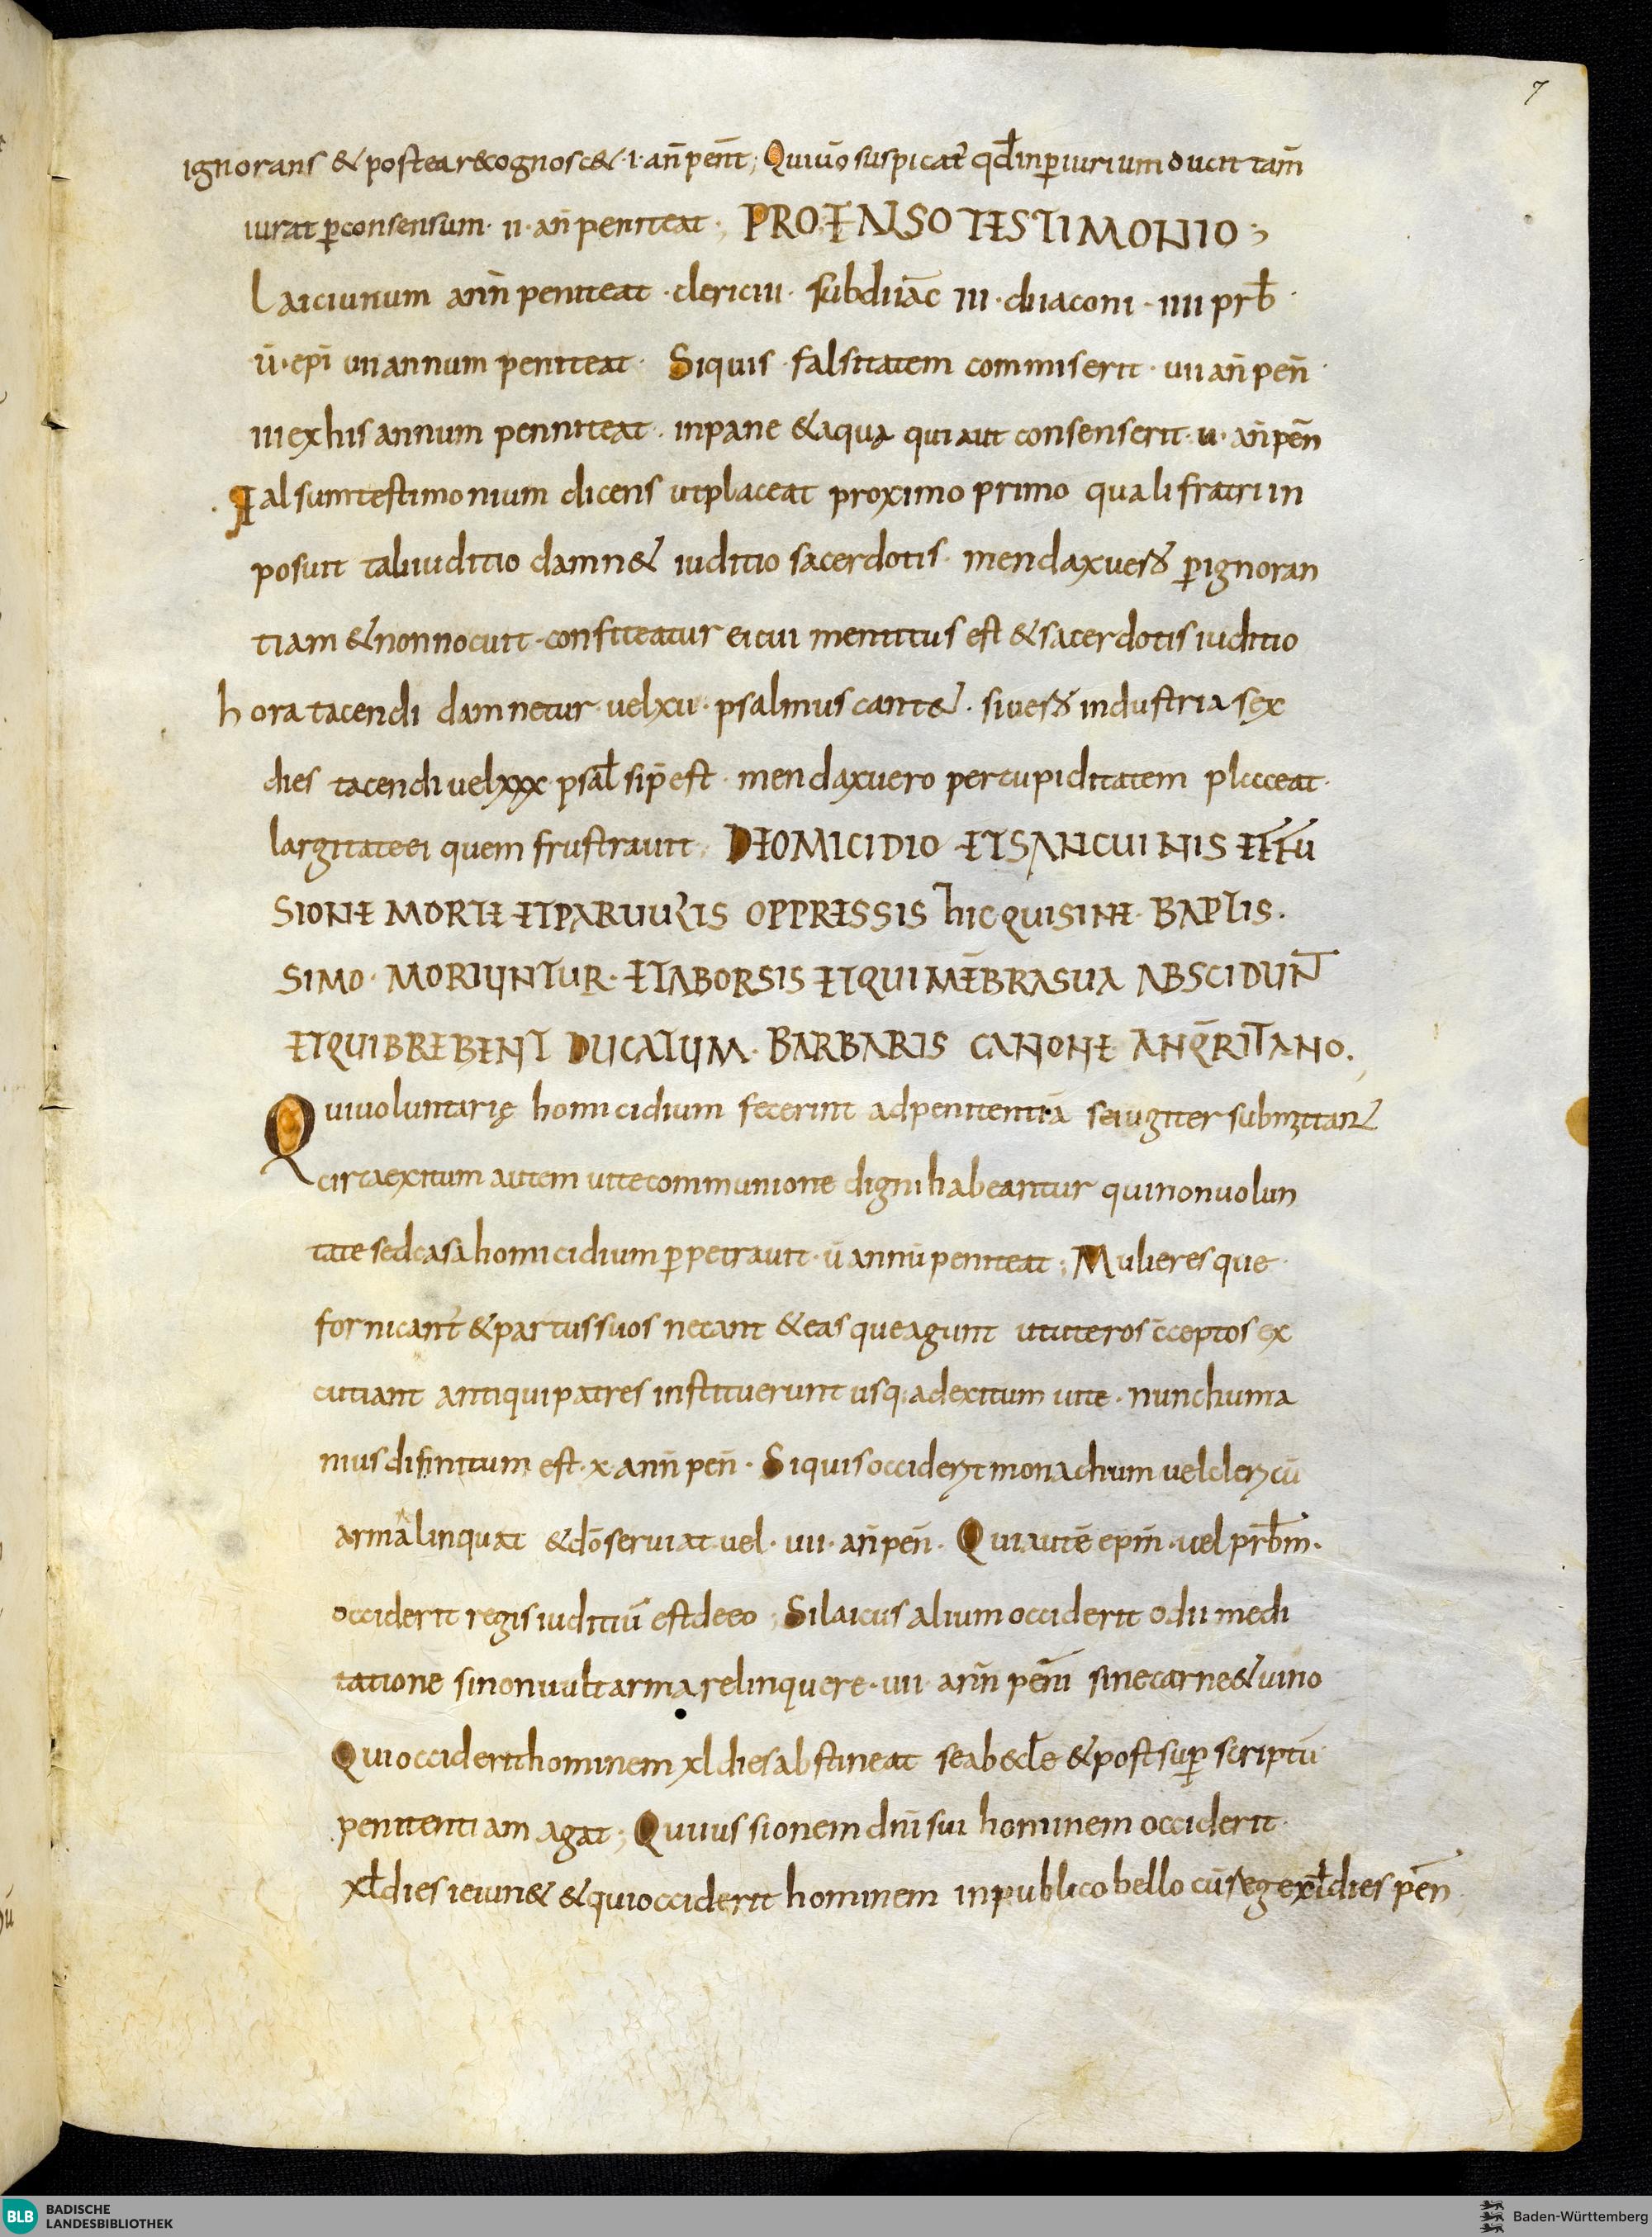 7
ignorans & postea recognosc& · i · an̄ penit̄; Qui ūo suspicat̄ qd̄ in ꝑiurium ducit tam̄
iurat ꝑ consensum · ii · an̄ peniteat; PRO FALSO TESTIMONIO;
Laici unum ann̄ peniteat · clerici ii · subdiiac̄ iii · diiaconi · iiii prb̄ ·
ū · epī vii annum peniteat · Siquis · falsitatem commiserit · vii an̄ pen̄ ·
iii ex his annum penniteat · in pane & aqua qui aut consenserit · u · an̄ pen̄
Falsum testimonium dicens ut placeat proximo primo quali fratri in
posuit tali iuditio damn& iuditio sacerdotis · mendax uero ꝑ ignoran
tiam & non nocuit · confiteatur ei cui mentitus est & sacerdotis iuditio
hora tacendi damnetur · uel xii · psalmus cant& · si uero industria sex
dies tacendi uel xxx · psal̄ si p̄est · mendax uero per cupiditatem placeat ·
largitate ei quem frustrauit; DE OMICIDIO ET SANCUINIS EFFU
SIONE MORTE ET PARUULIS OPPRESSIS hIC QUI SINE · BAPTIS ·
SIMO · MORIUNTUR · ET ABORSIS ET QUI MĒBRA SUA ABSCIDUNT
ET QUI BREBENT DUCATUM · BARBARIS CANONE ANQ̄RITANO.
Qui uoluntarię homicidium fecerint ad penitentiā se iugiter submittant
circa exitum autem uite communione digni habeantur qui non uolun
tate sed casa homicidium ꝑpetrauit · ū annū peniteat; Mulieres que ·
fornicant̄ & partus suos necant & eas que agunt ut uteros c̄ceptos ex
cutiant antiqui patres instituerunt usq; ad exitum uite · nunc huma
nius difinitum est · x · ann̄ pen̄ · Siquis occiderit monachum uel clericū
arma linquat & dō seruiat uel · uii · an̄ pen̄ · Qui autē epm̄ · uel prb̄m ·
occiderit regis iuditiū est de eo; Si laicus alium occiderit odii medi
tatione si non uult arma relinquere · uii · ann̄ peni̅ sine carne & uino
Qui occiderit hominem xl dies abstineat se ab ecl̄e & post suꝑ scriptū
penitentiam agat; Qui iussionem dnī sui hominem occiderit ·
xl̄ dies ieiun& & qui occiderit hominem in publico bello cū rege xl̄ dies pēn
BLB BADISCHE
LANDESBIBLIOTHEK
Baden-Württemberg